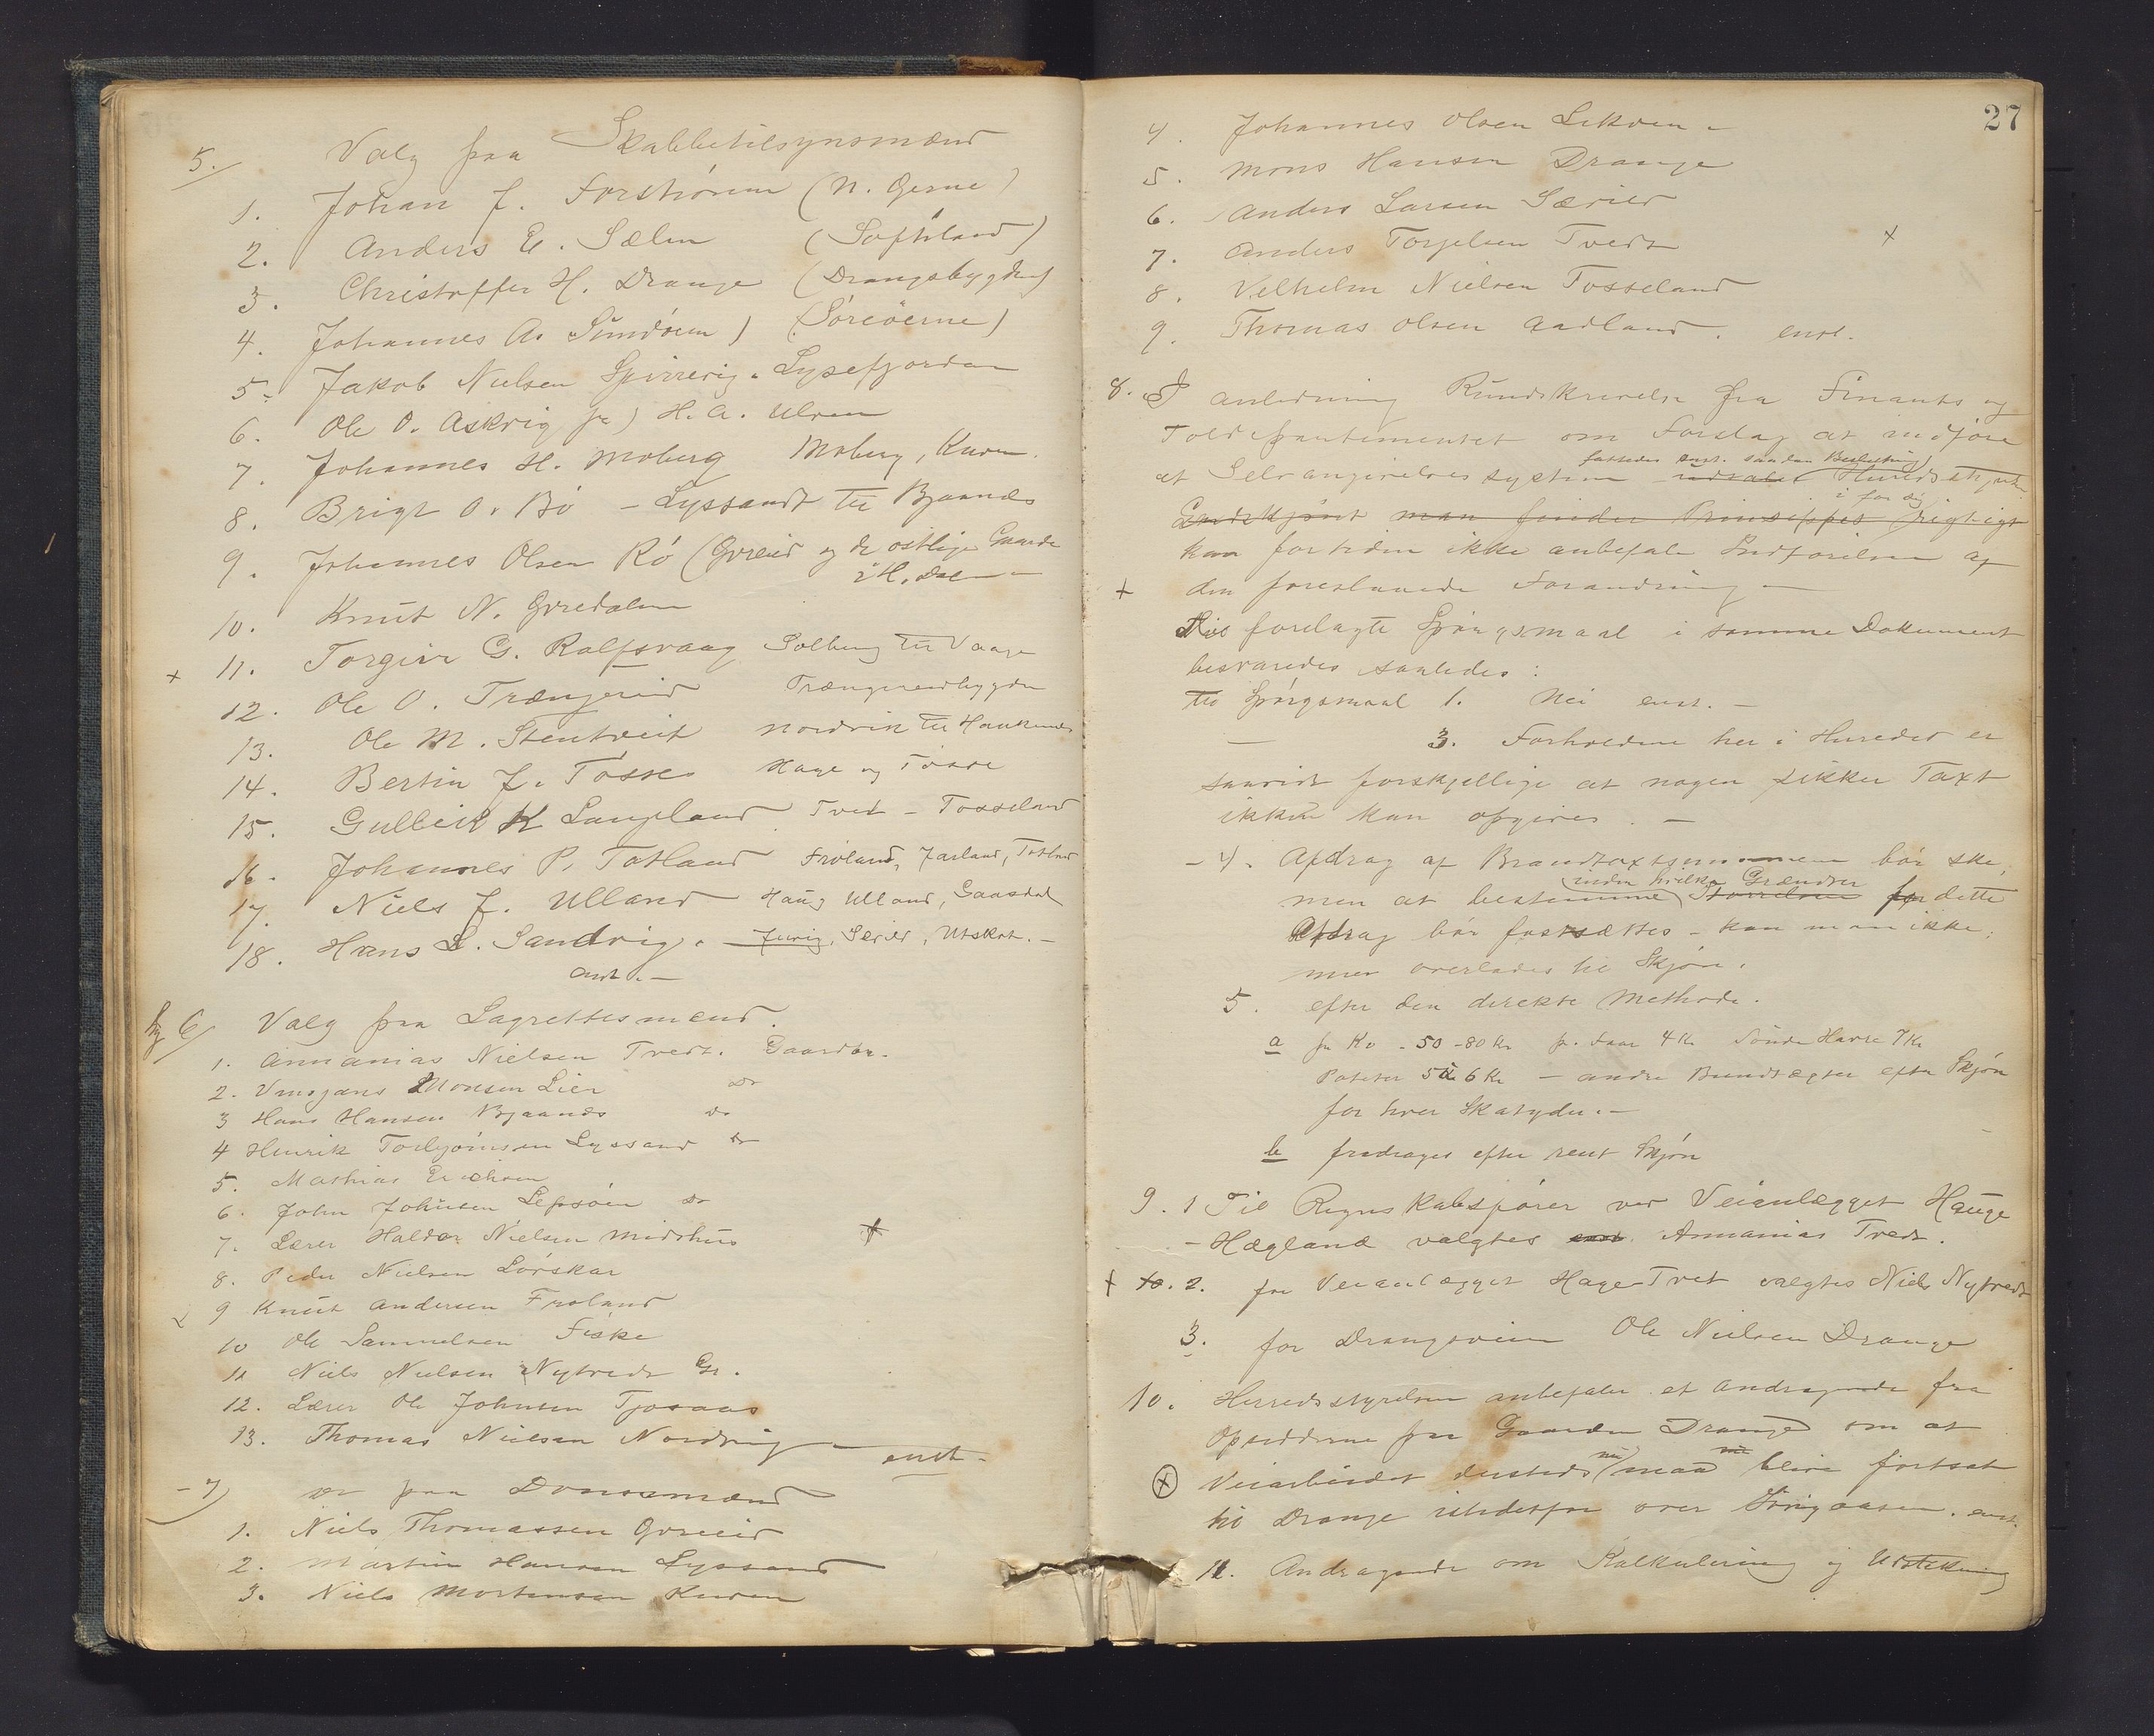 5. Valg paa Skabbetilsynsmænd
1. Johan J. Forstrønen (N. Øerne)
2. Anders E. Sælen (Søfteland)
3. Christoffer H. Drange (Drangsbygden)
4. Johannes A. Sundøen) (Søreøerne)
5. Jakob Nielsen Lysefjorden
6. Ole O. Askvig H. A. Ulven
7. Johannes H. Moberg Moberg, Kuven.
8. Brigt O. Bø – Lyssandt til Bjaanæs
9. Johannes Olsen Rø (Gvreid og de østlige Gaarde
i H. dal –
10. Knut N. Øvredalen
+ 11. Torgeir G. Rolfsvaag Solberg til Vaage
12. Ole O. Trængereid Trængereidbygden
13. Ole M. Stentveit Nordvik til Haukenæs
14. Bertin J. Tøsse Hage og Tøsse
15. Gulleik K Langeland Tved – Tosseland
16. Johannes P. Tøtland Frøland, Jarland, Tøtland
17. Niels J. Ulland Haug Ulland, Gaasdal
18. Hans L. Sandvig. – Juvig, Særeid, Utskot. –
enst. –
6/ Valg paa Lagrettesmænd.
1. Annanias Nielsen Tvedt. Gaardbr.
2. Monsen Lien Do
3 Hans Hansen Bjaanæs do
4 Henrik Torbjørnsen Lyssand do
5. Mathias Erichsen
6. John Johnsen Lepsøen do
7. Lærer Haldor Nielsen Midthus +
8. Peder Nielsen Lørskar
9 Knut Andersen Frøland
10 Ole Samuelsen Fiske
11 Niels Nielsen Nytvedt Gr.
12. Lærer Ole Johnsen Tjosaas
13. Thomas Nielsen Nordvig – enst. –
– 7) do paa Domsmænd
1. Niels Thomassen Gvreid
2. Martin Hansen Lyssand
3. Niels Mortensen Kuven
27
4. Johannes Olsen Lekven –
5. Mons Hansen Drange
6. Anders Larsen Særeid
7. Anders Torjelsen Tvedt +
8. Velhelm Nielsen Tosseland
9. Thomas Olsen Aadland. enst.
8. I anledning Rundskrivelse fra Finants og
Tolddepartementet om Forslag at indføre
fattedes enst. saadan Beslutning
et Selvangivelsessystem udtaler Herredsstyret
i for sig
Endskjønt man finder Prinsippet rigtigt
kan fortiden ikke anbefale Indførelsen af
+ den foreslaaede Forandring –
De forelagte Spørgsmaal i samme Dokument
besvaredes saaledes:
til Spørgsmaal 1. Nei enst. –
– 3. Forholdene her i Herredet er
saavidt forskjellige at nogen sikker Taxt
ikke kan opgives. –
– 4. Afdrag af Brandtaxtsummene bør ske,
inden hvilke Grændser
men at bestemme Størrelsen for dette
Afdrag bør fastsættes – kan man ikke,
men overlades til Skjøn.
5. efter den direkte Methode.
a pr Ko – 50 – 80 Kr pr. Faar 4 Kr Tønde Havre 7 Kr
Poteter 5 à 6 Kr – andre Bundtægter efter Skjøn
for hver Skatyder. –
b fradrages efter rent Skjøn
9. 1 Til Regnskabsfører ved Veianlægget Hauge
– Hægland valgtes enst. Annanias Tvedt.
+ 10. 2. for Veianlægget Hage–Tvet valgtes Niels Nytvedt
3. for Drangsveien Ole Nielsen Drange
10. Herredsstyrelsen anbefaler et Andragende fra
Opsidderne paa Gaarden Drange om at
nu
+ Veiarbeidet dersteds maa blive fortsat
til Drange istedetfor over . enst.
11. Andragende om Kalkulering og Udstikning